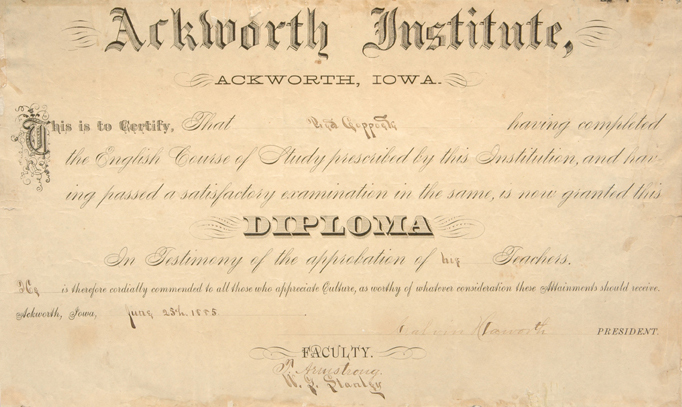 Ackworth Institute,
ACKWORTH, IOWA.
This is to Certify, That Coppock having completed
the English Course of Study prescribed by this Institution, and hav-
ing passed a satisfactory examination in the same, is now granted this
DIPLOMA
In Testimony of the approbation of his Teachers.
He is therefore cordially commended to all those who appreciate Culture, as worthy of whatever consideration these Attainments should receive.
Ackworth, Iowa, June
Haworth PRESIDENT.
FACULTY.
Armstrong.
W. J.